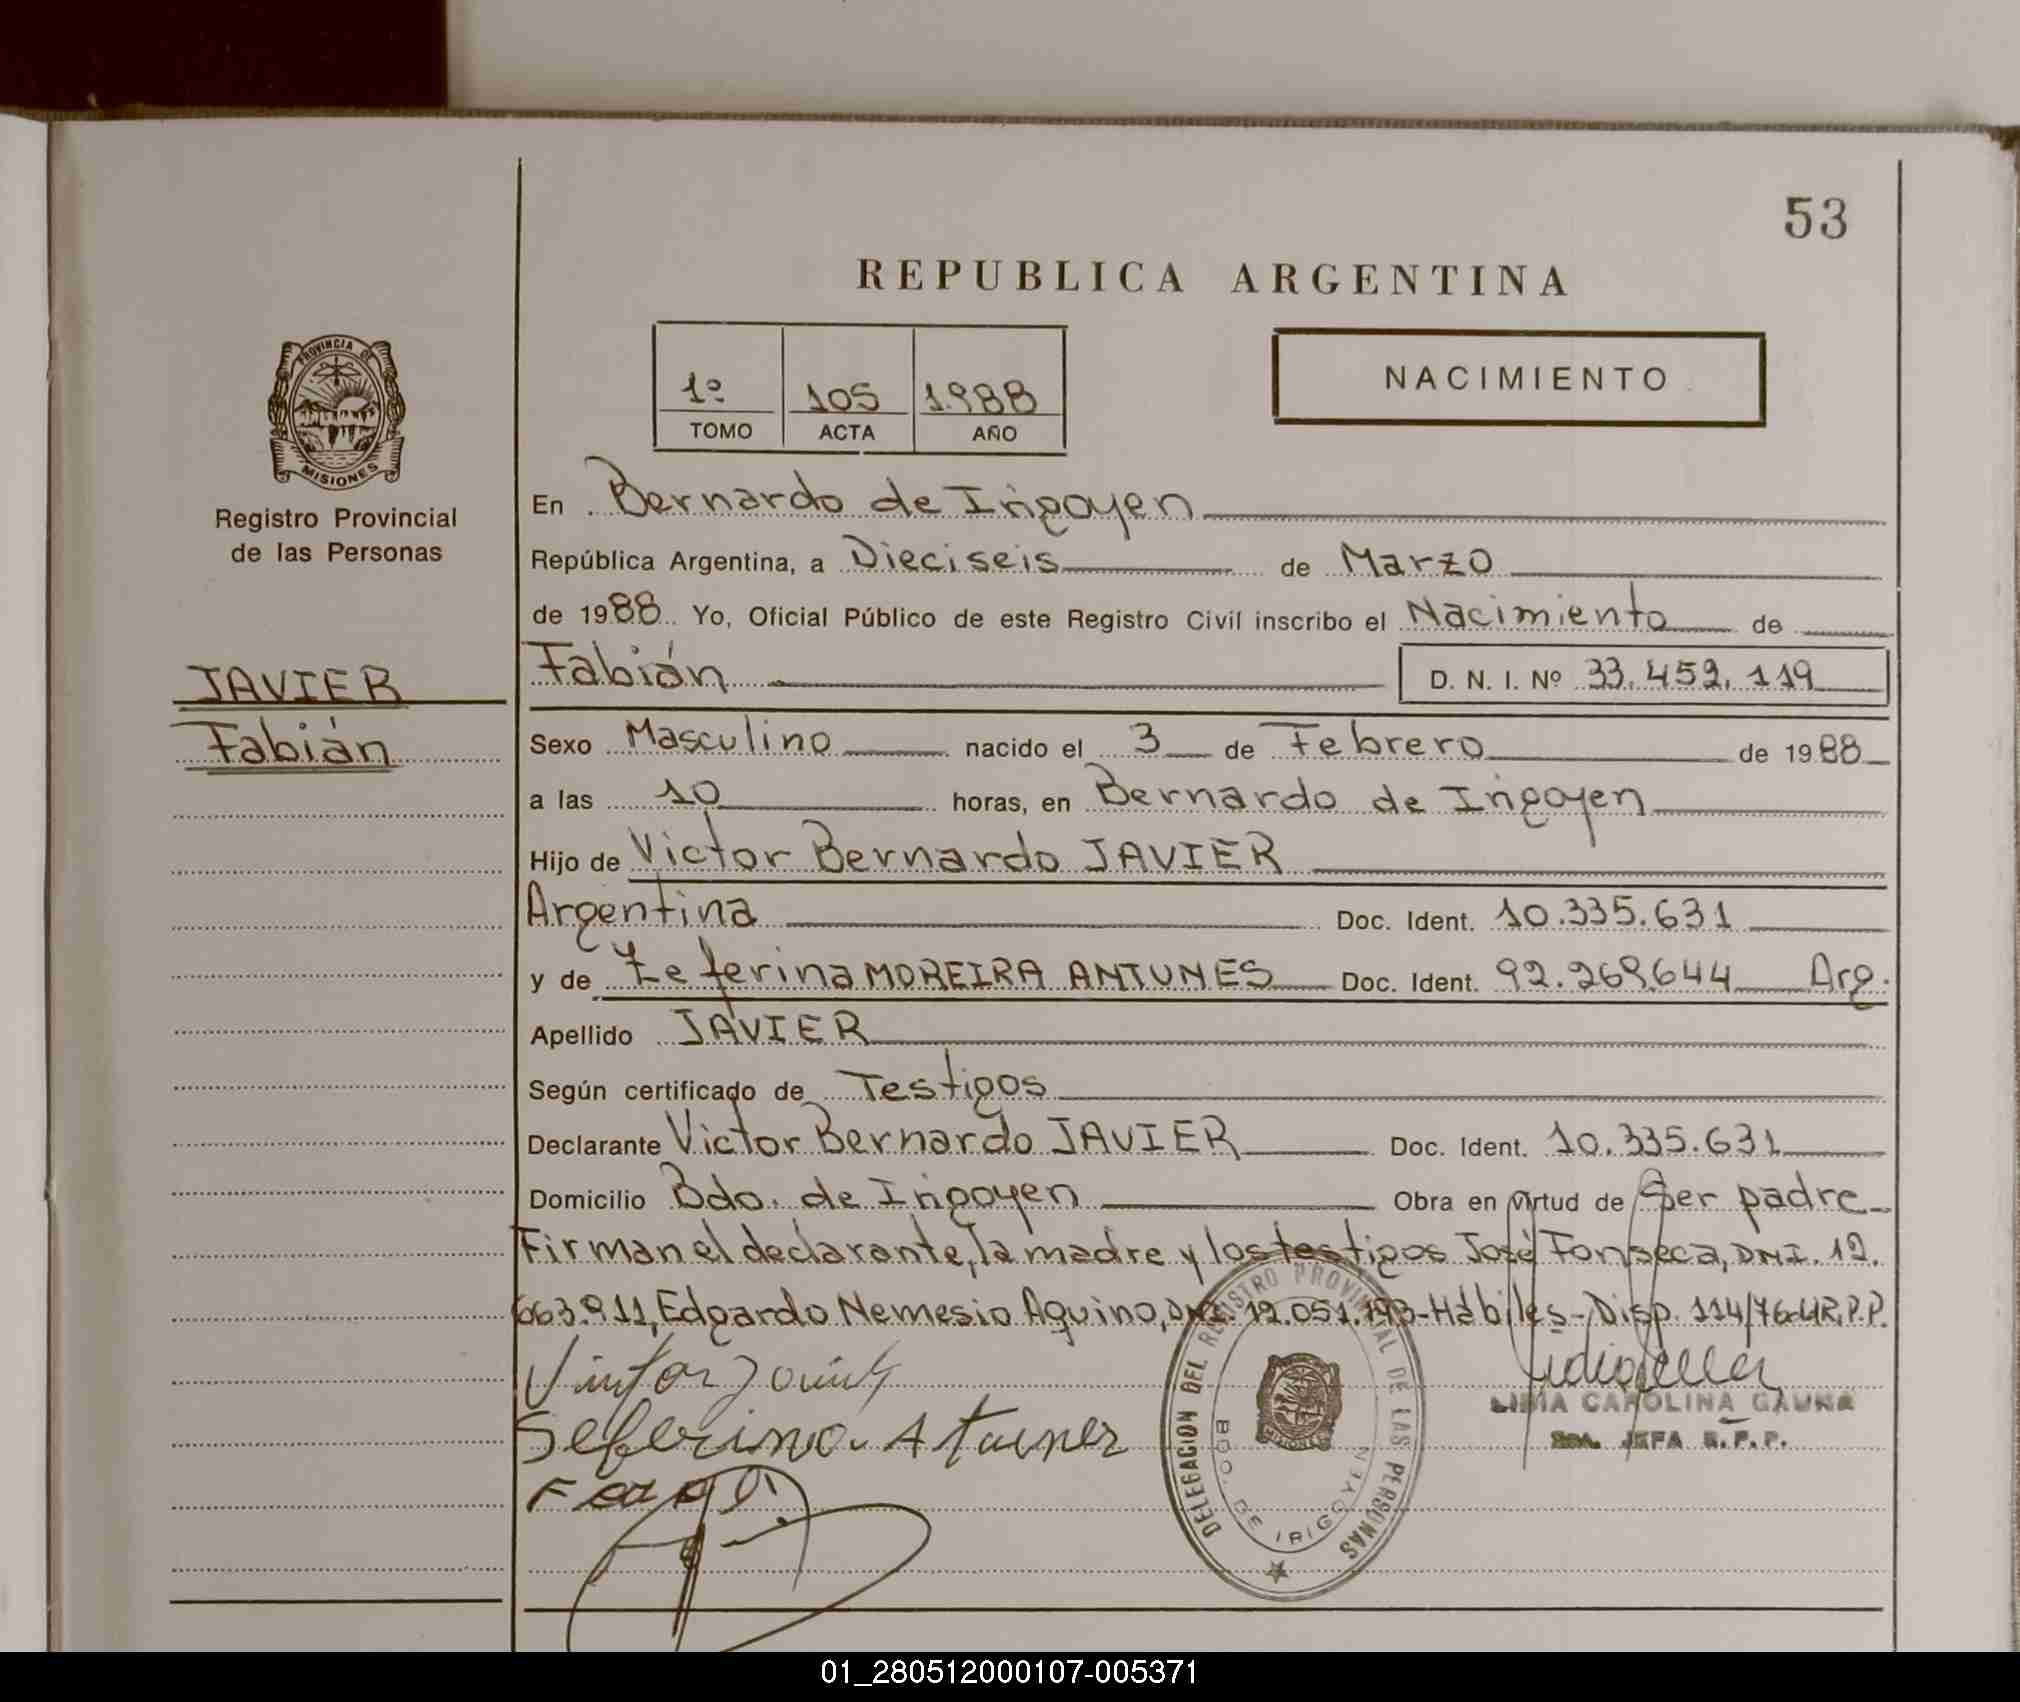 53
REPUBLICA ARGENTINA
1º 105 1.988
TOMO ACTA AÑO
NACIMIENTO
PROVINCIA DE
MISIONES
Registro Provincial
de las Personas
JAVIER
Fabián
En Bernardo de Irigoyen
República Argentina, a Dieciseis de Marzo
de 1988 Yo, Oficial Público de este Registro Civil inscribo el Nacimiento de
Fabián D. N. I. Nº 33.452.119
Sexo Masculino nacido el 3 de Febrero de 1988
a las 10 horas, en Bernardo de Irigoyen
Hijo de Victor Bernardo JAVIER
Argentina Doc. Ident. 10.335.631
y de Zeferina MOREIRA ANTUNES Doc. Ident. 92.269.644 Arg.
Apellido JAVIER
Según certificado de Testigos
Declarante Victor Bernardo JAVIER Doc. Ident. 10.335.631
Domicilio Bdo. de Irigoyen Obra en virtud de Ser padre
Firman el declarante, la madre y los testigos José Fonseca, DNI. 12.
663.911, Edgardo Nemesio Aquino, DNI. 12.051.193-Hábiles-Disp. 114/76-
LIDIA CAROLINA GAUNA
JEFA R.P.P.
DELEGACION DEL REGISTRO PROVINCIAL DE LAS PERSONAS
BDO. DE IRIGOYEN
MISIONES
01_280512000107-005371